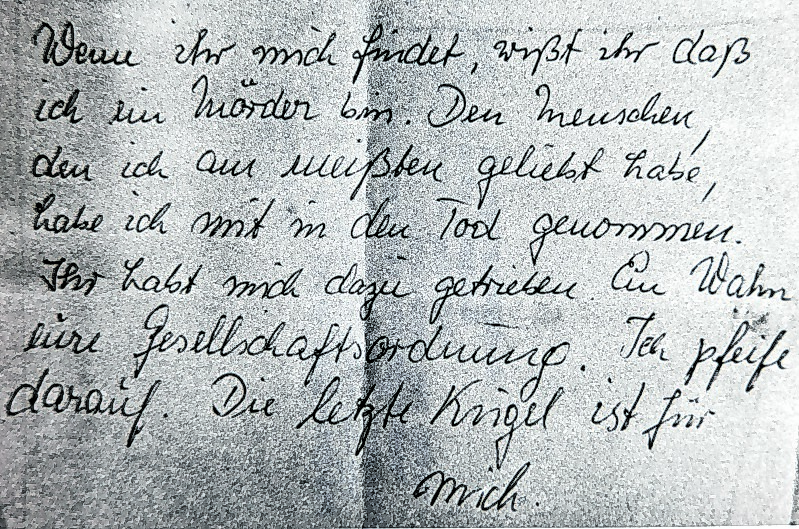 Wenn ihr mich findet, wißt ihr daß
ich ein Mörder bin. Den Menschen,
den ich am meißten geliebt habe,
habe ich mit in den Tod genommen.
Ihr habt mich dazu getrieben. Ein Wahn
eure Gesellschaftsordnung. Ich pfeife
darauf. Die letzte Kugel ist für
mich.